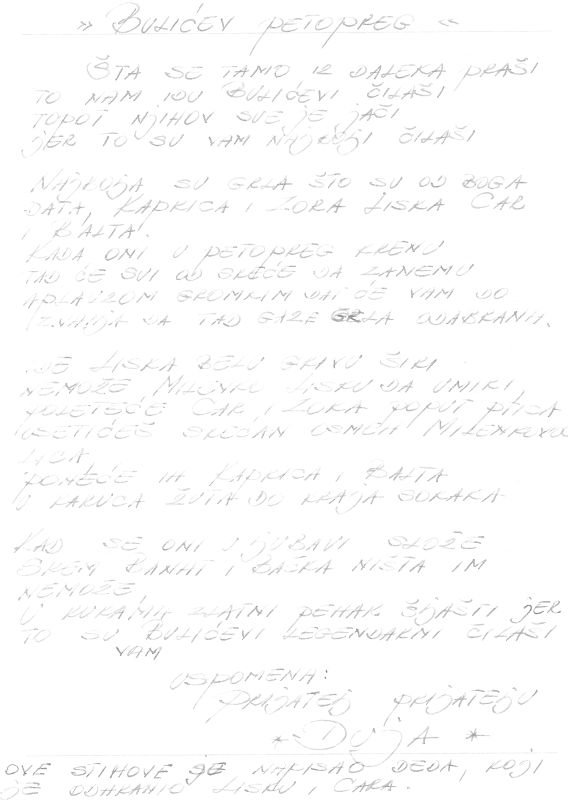 " BULIĆEV PETOPREG "
ŠTA SE TAMO IZ DALEKA PRAŠI
TO NAM IDU BULIĆEVI ČILAŠI
TOPOT NJIHOV SVE JE JAČI
JER TO SU VAM NAJBOLJI ČILAŠI
SU GRLA ŠTO SU OD BOGA
DATA, KAPRICA I ZORA LISKA CAR
I BAJTA.
KADA ONI U PETOPREG KRENU
TAD ĆE SVI OD SREĆE DA ZANEMU
GROMKIM DAĆE VAM DO
ZNANJA DA TAD GAZE GRLA ODABRANA.
LISKA BELU GRIVU ŠIRI
NEMOŽE MILENKO LISKU DA UMIRI,
POLETEĆE CAR I ZORA POPUT PTICA
OSETIĆEŠ SREĆAN OSMEH MILENKOVOG
LICA
PONEĆE IH KAPRICA I BAJTA
U KARUCA ŽUTA DO KRAJA SOKAKA
KAD SE ONI U LJUBAVI SLOŽE
SREM BANAT I BAČKA NIŠTA IM
NEMOŽE,
U RUKAMA ZLATNI PEHAR ŠLJAŠTI JER
TO SU BULIĆEVI LEGENDARNI ČILAŠI
VAM
USPOMENA:
PRIJATELJ PRIJATELJU
* DUJA *
OVE STIHOVE JE NAPISAO DEDA, KOJI
JE ODHRANIO LISKU I CARA.